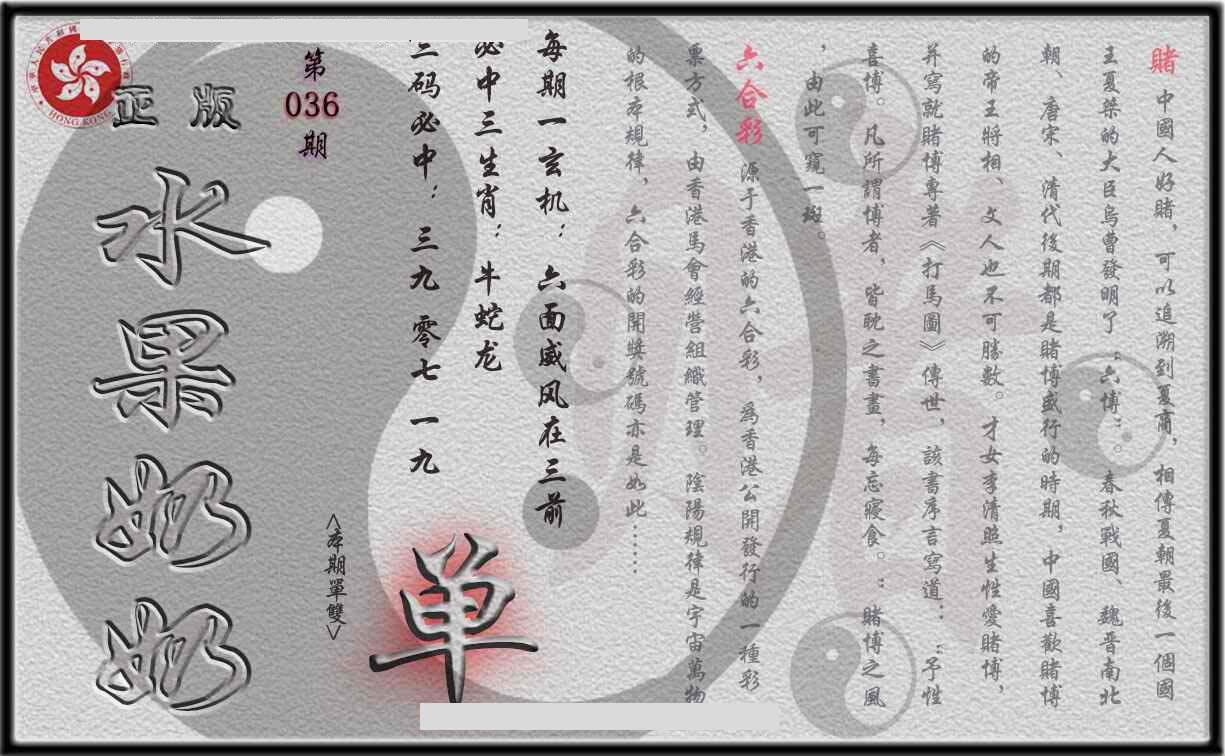 賭 中國人好賭，可以追溯到夏商，相傳夏朝最後一個國
王夏桀的大臣烏曹發明了“六博”。春秋戰國、魏晉南北
朝、唐宋、清代後期都是賭博盛行的時期，中國喜歡賭博
的帝王將相、文人也不可勝數。才女李清照生性愛賭博，
并寫就賭博專著《打馬圖》傳世，該書序言寫道：“予性
喜博。凡所謂博者，皆耽之書畫，每忘寢食。”賭博之風
，由此可窺一斑。
六合彩 源于香港的六合彩，爲香港公開發行的一種彩
票方式，由香港馬會經營組織管理。陰陽規律是宇宙萬物
的根本規律，六合彩的開獎號碼亦是如此……
每期一玄机：六面威风在三前
必中三生肖：牛蛇龙
三码必中：三九 零七 一九
第
036
期
<本期單雙>
单
正版
水果奶奶
HONG KONG